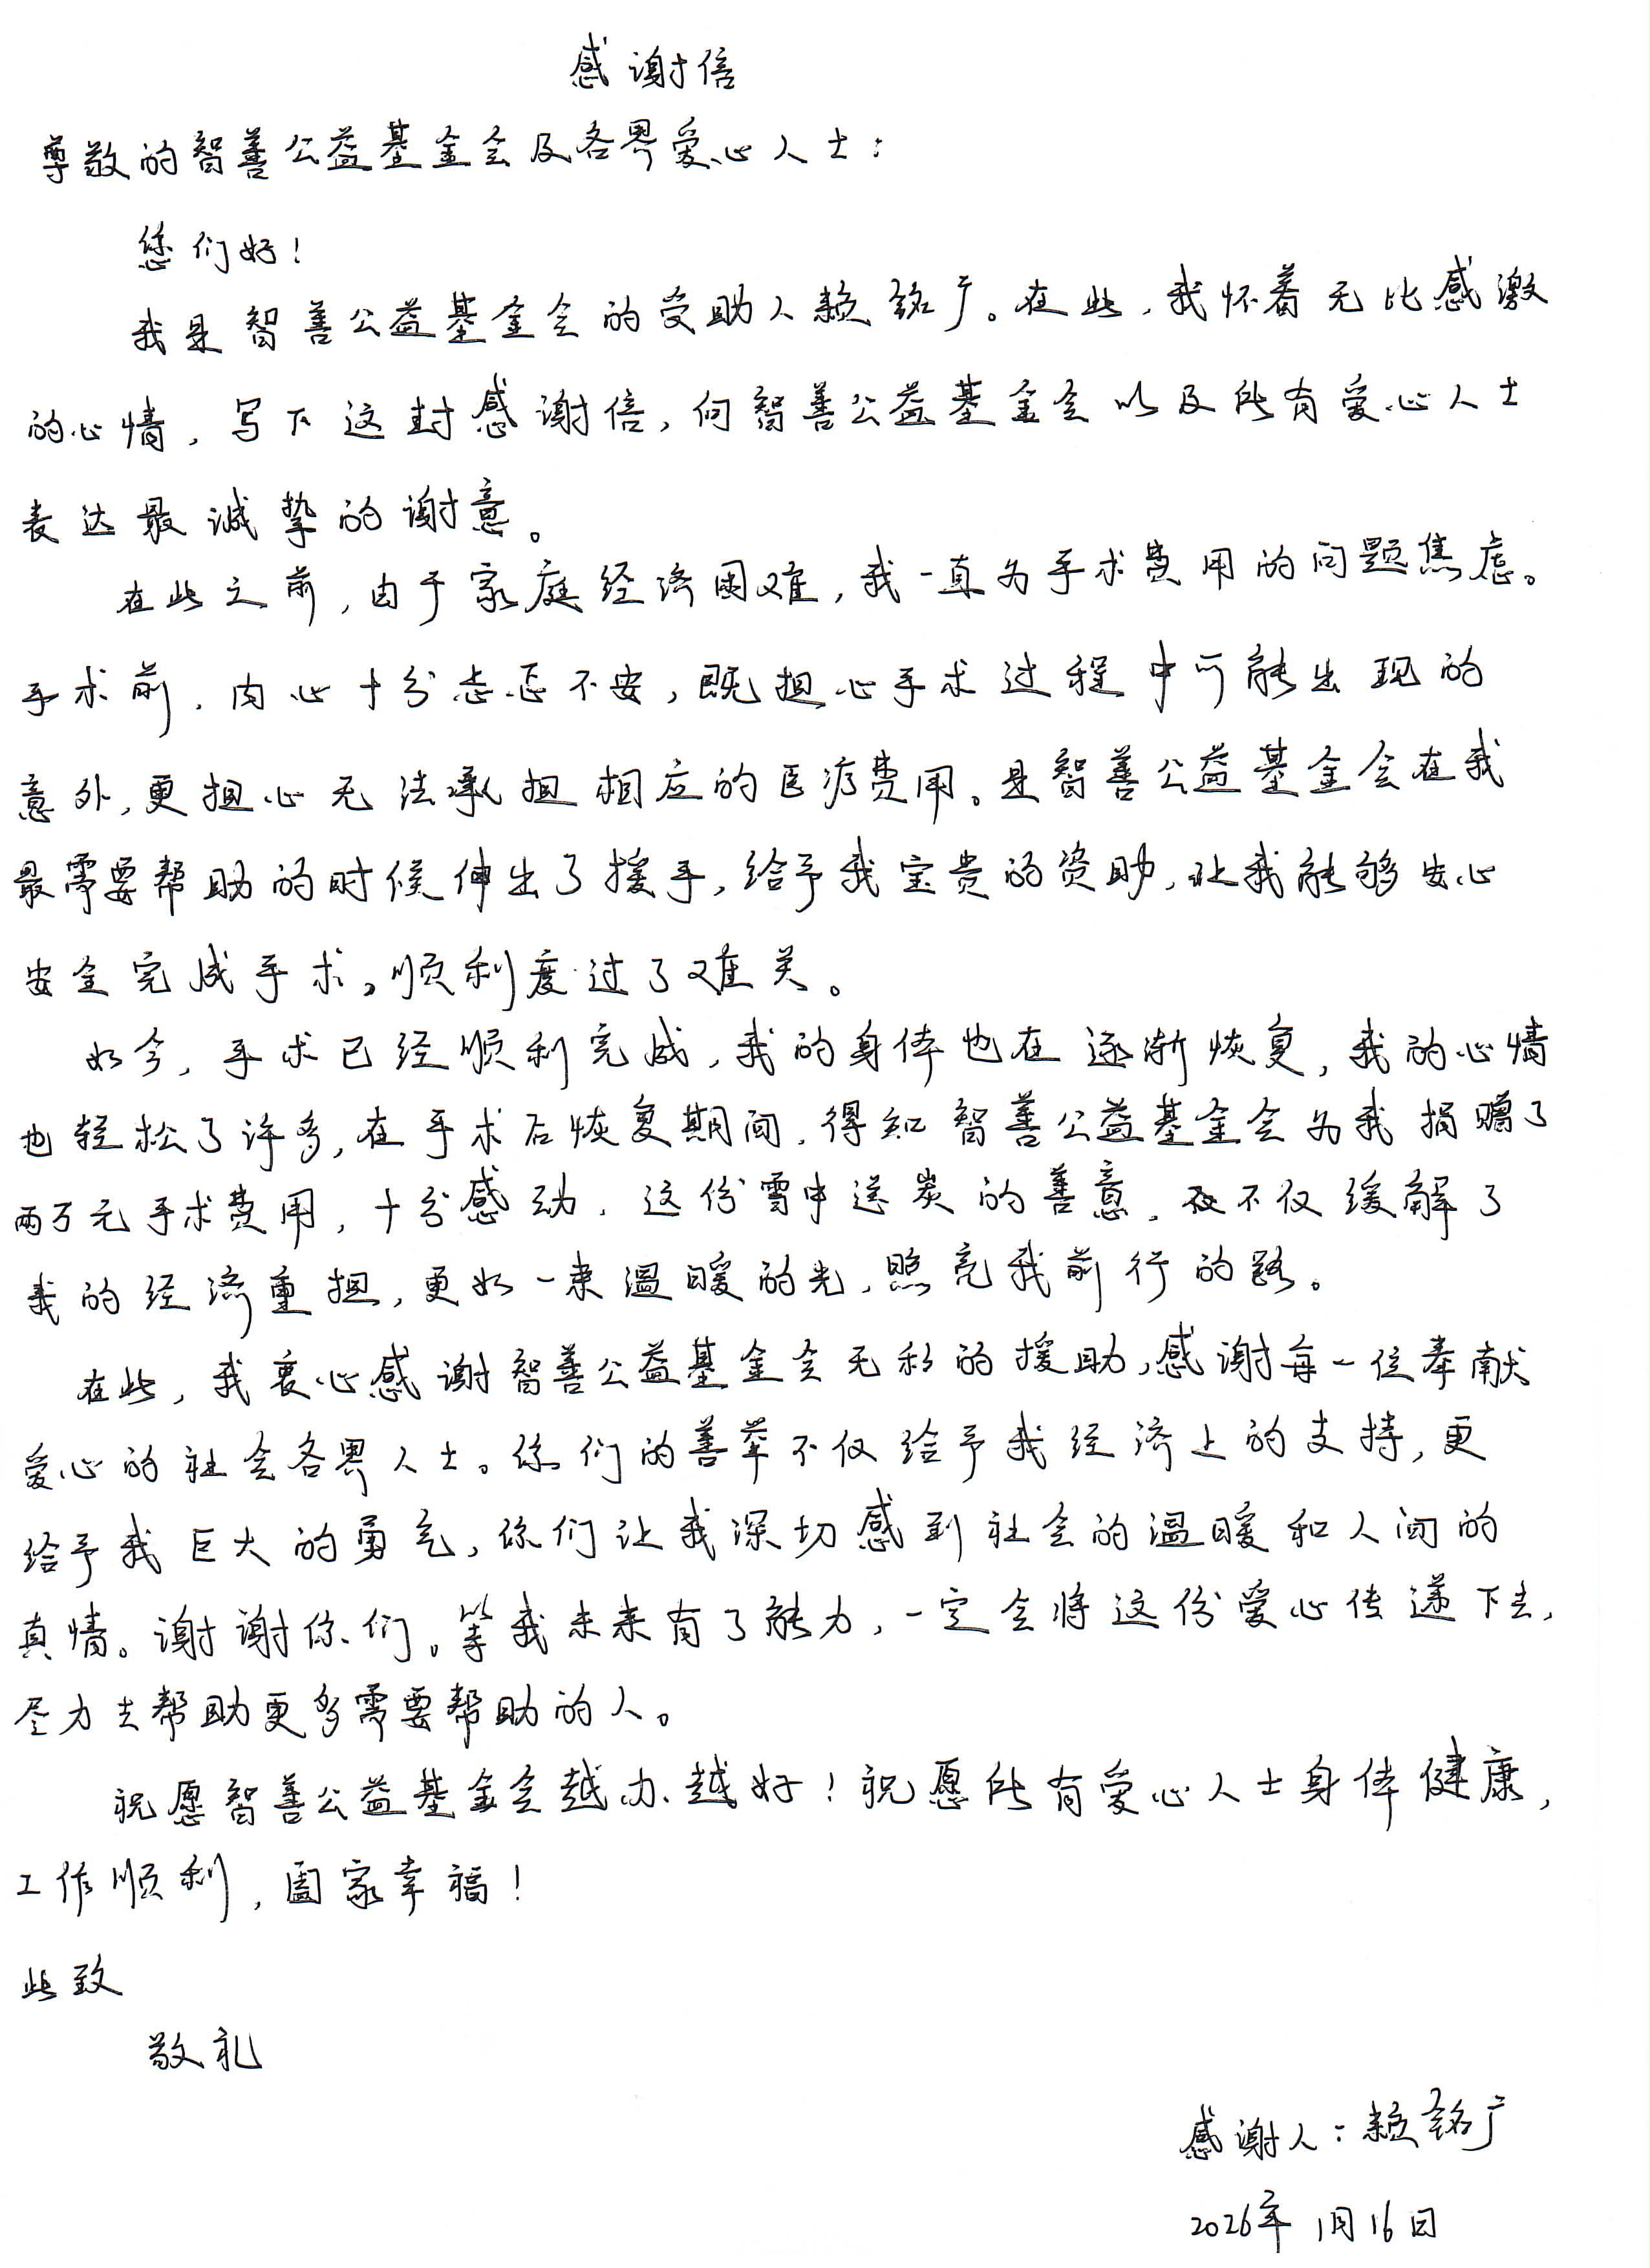 感谢信
尊敬的智善公益基金会及各界爱心人士：
您们好！
我是智善公益基金会的受助人赖铭广。在此，我怀着无比感激
的心情，写下这封感谢信，向智善公益基金会以及所有爱心人士
表达最诚挚的谢意。
在此之前，由于家庭经济困难，我一直为手术费用的问题焦虑。
手术前，内心十分忐忑不安，既担心手术过程中可能出现的
意外，更担心无法承担相应的医疗费用。是智善公益基金会在我
最需要帮助的时候伸出了援手，给予我宝贵的资助，让我能够安心
安全完成手术，顺利度过了难关。
如今，手术已经顺利完成，我的身体也在逐渐恢复，我的心情
也轻松了许多，在手术后恢复期间，得知智善公益基金会为我捐赠了
两万元手术费用，十分感动，这份雪中送炭的善意，不仅缓解了
我的经济重担，更如一束温暖的光，照亮我前行的路。
在此，我衷心感谢智善公益基金会无私的援助，感谢每一位奉献
爱心的社会各界人士。你们的善举不仅给予我经济上的支持，更
给予我巨大的勇气，你们让我深切感到社会的温暖和人间的
真情。谢谢你们。等我未来有了能力，一定会将这份爱心传递下去，
尽力去帮助更多需要帮助的人。
祝愿智善公益基金会越办越好！祝愿所有爱心人士身体健康，
工作顺利，阖家幸福！
此致
敬礼
感谢人：赖铭广
2026年1月16日